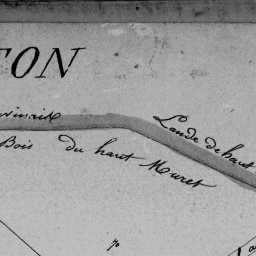 TON
Lande de haut
Bois du haut Muret
70